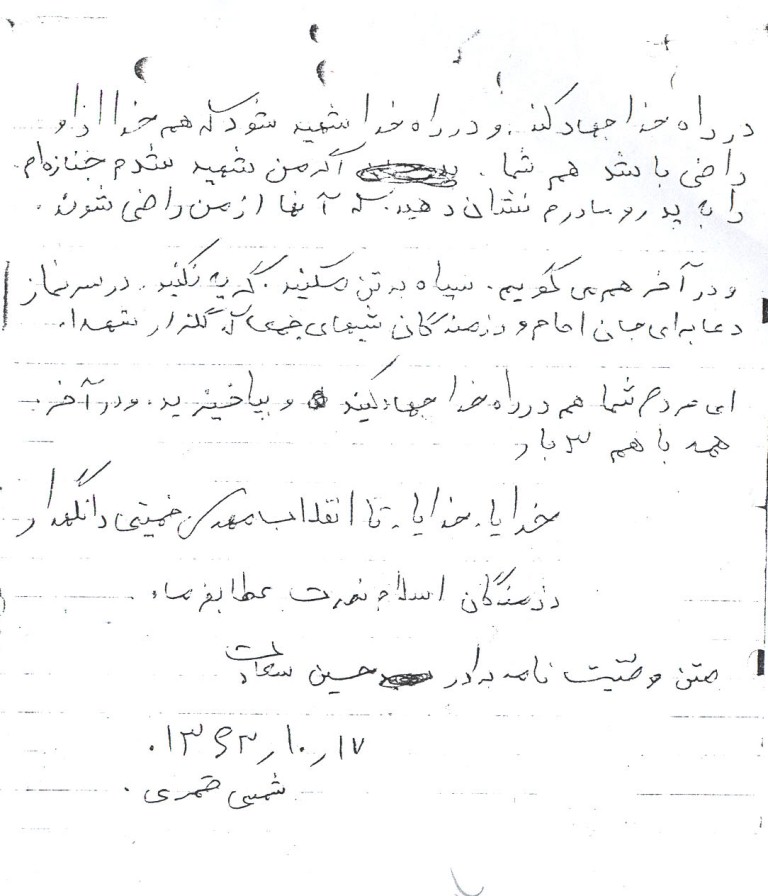 در راه خدا جهاد کند . و در راه خدا شهید شود که هم خدا از او
راضی باشد هم شما . اگر من شهید شدم جنازه‌ام
را به پدر و مادرم نشان دهید که آنها از من راضی شوند .
و در آخر هم می گویم . سیاه به تن مکنید . گریه نکنید . در سر نماز
دعا برای جان امام و رزمندگان گلزار شهدا .
ای مردم شما هم در راه خدا جهاد کنید و بپا خیزید . و در آخر .
همه با هم ۳ بار
خدایا . خدایا . تا انقلاب مهدی خمینی را نگهدار
رزمندگان اسلام نصرت عطا بفرما .
متن وصیت نامه برادر حسین سعادت
۱۷ ر ۱۰ ر ۱۳۶۲ .
شمسی قمری .